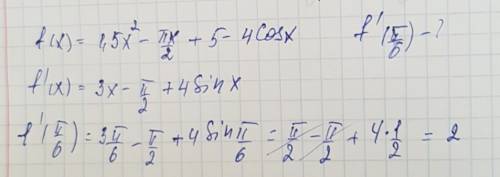 f(x) = 1,5x² - πx/2 + 5 - 4cosx f'(π/6) - ?
f'(x) = 3x - π/2 + 4sinx
f'(π/6) = 3π/6 - π/2 + 4sin π/6 = π/2 - π/2 + 4·1/2 = 2